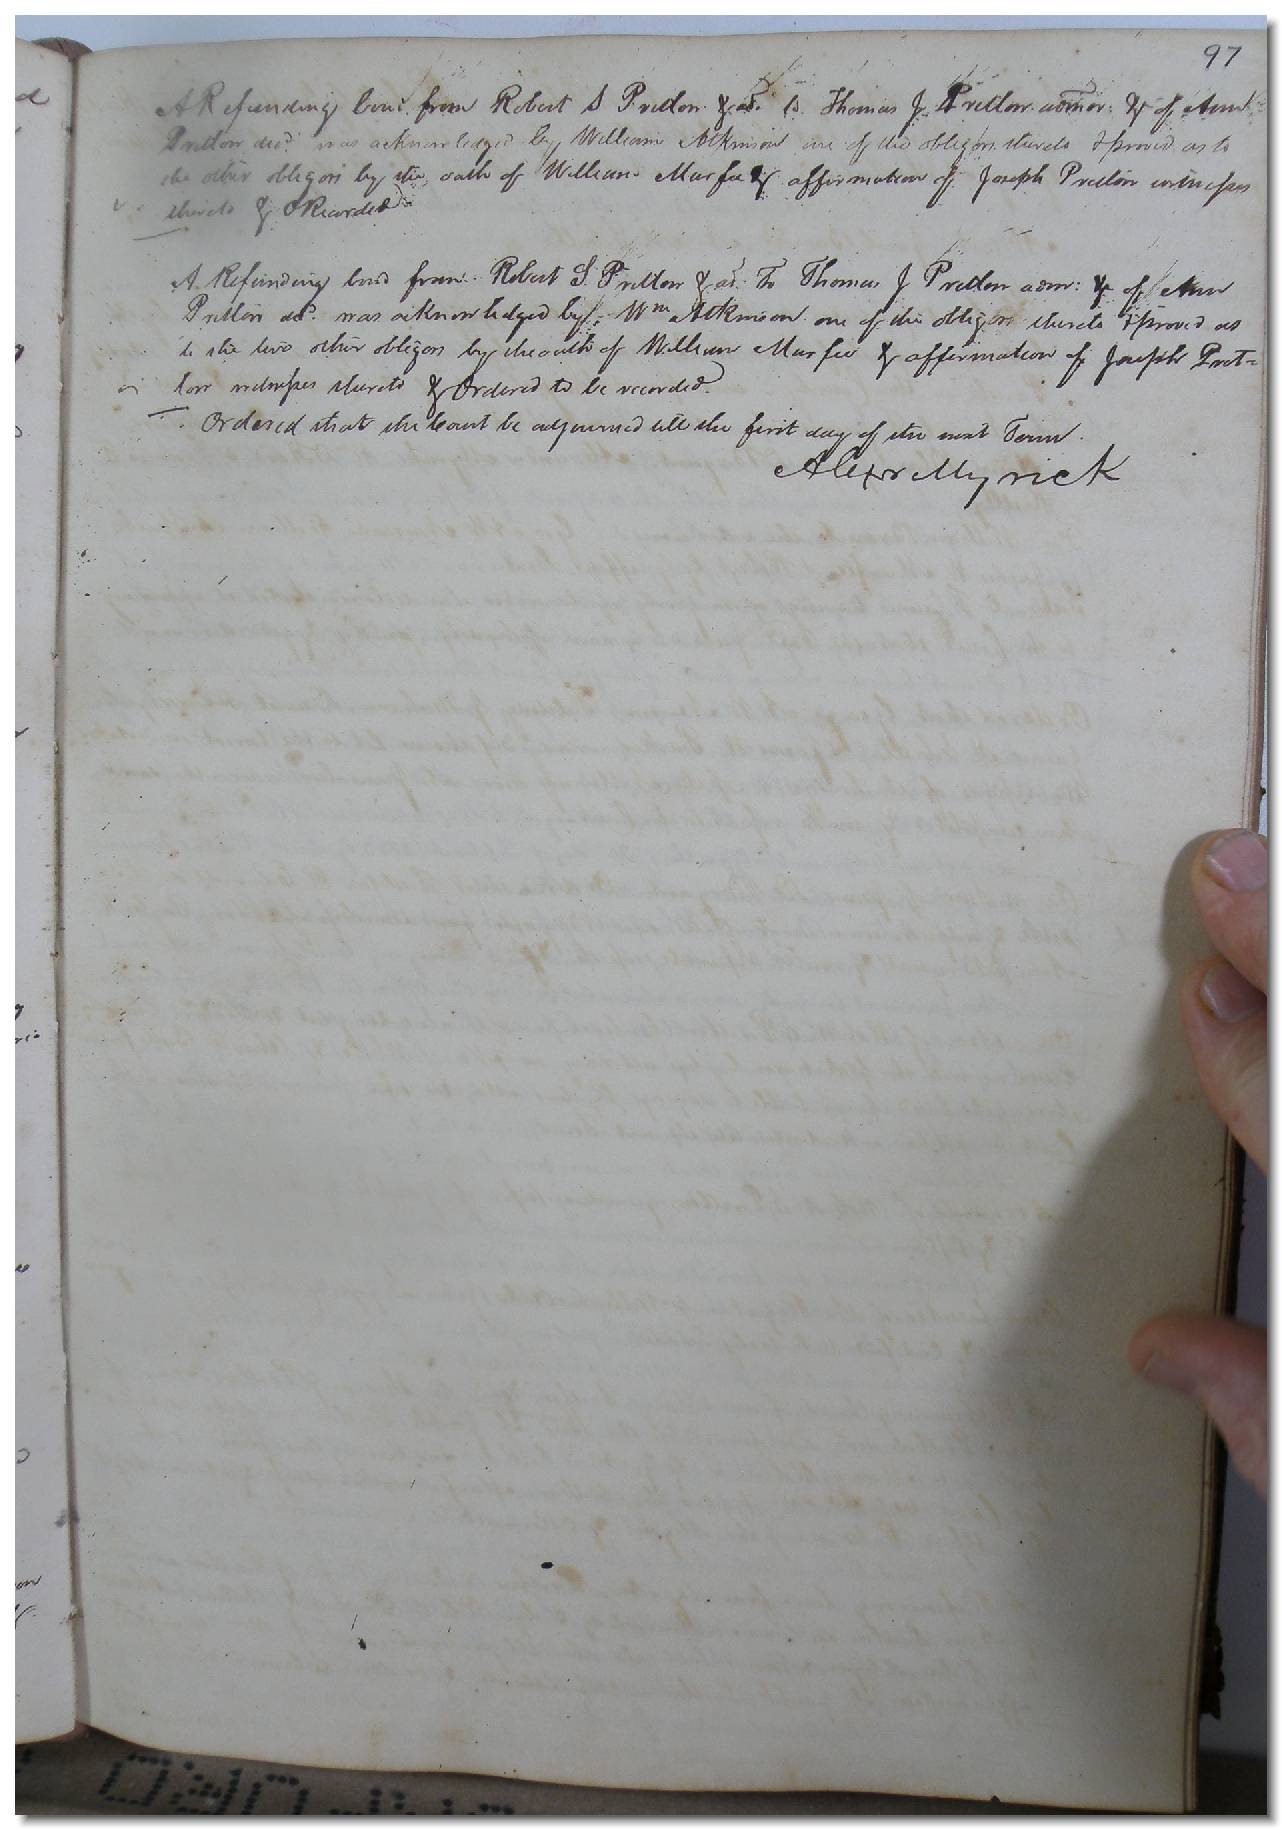 97
A Refunding bond from Robert S Pretlow & als. to Thomas J. Pretlow admor: &c of Ann
Pretlow decd. was acknowledged by William Atkinson one of the obligors thereto & proved as to
the other obligors by the oath of William Murfee & affirmation of Joseph Pretlow witnesses
thereto & ORecorded.
A Refunding bond from Robert S. Pretlow & als. To Thomas J Pretlow adm: &c of Ann
Pretlow decd. was acknowledged by Wm Atkinson one of the obligors thereto & proved as
to the two other obligors by the oath of William Murfee & affirmation of Joseph Pret=
low witnesses thereto & Ordered to be recorded.
Ordered that the Court be adjourned till the first day of the next Term.
Alexr Myrick